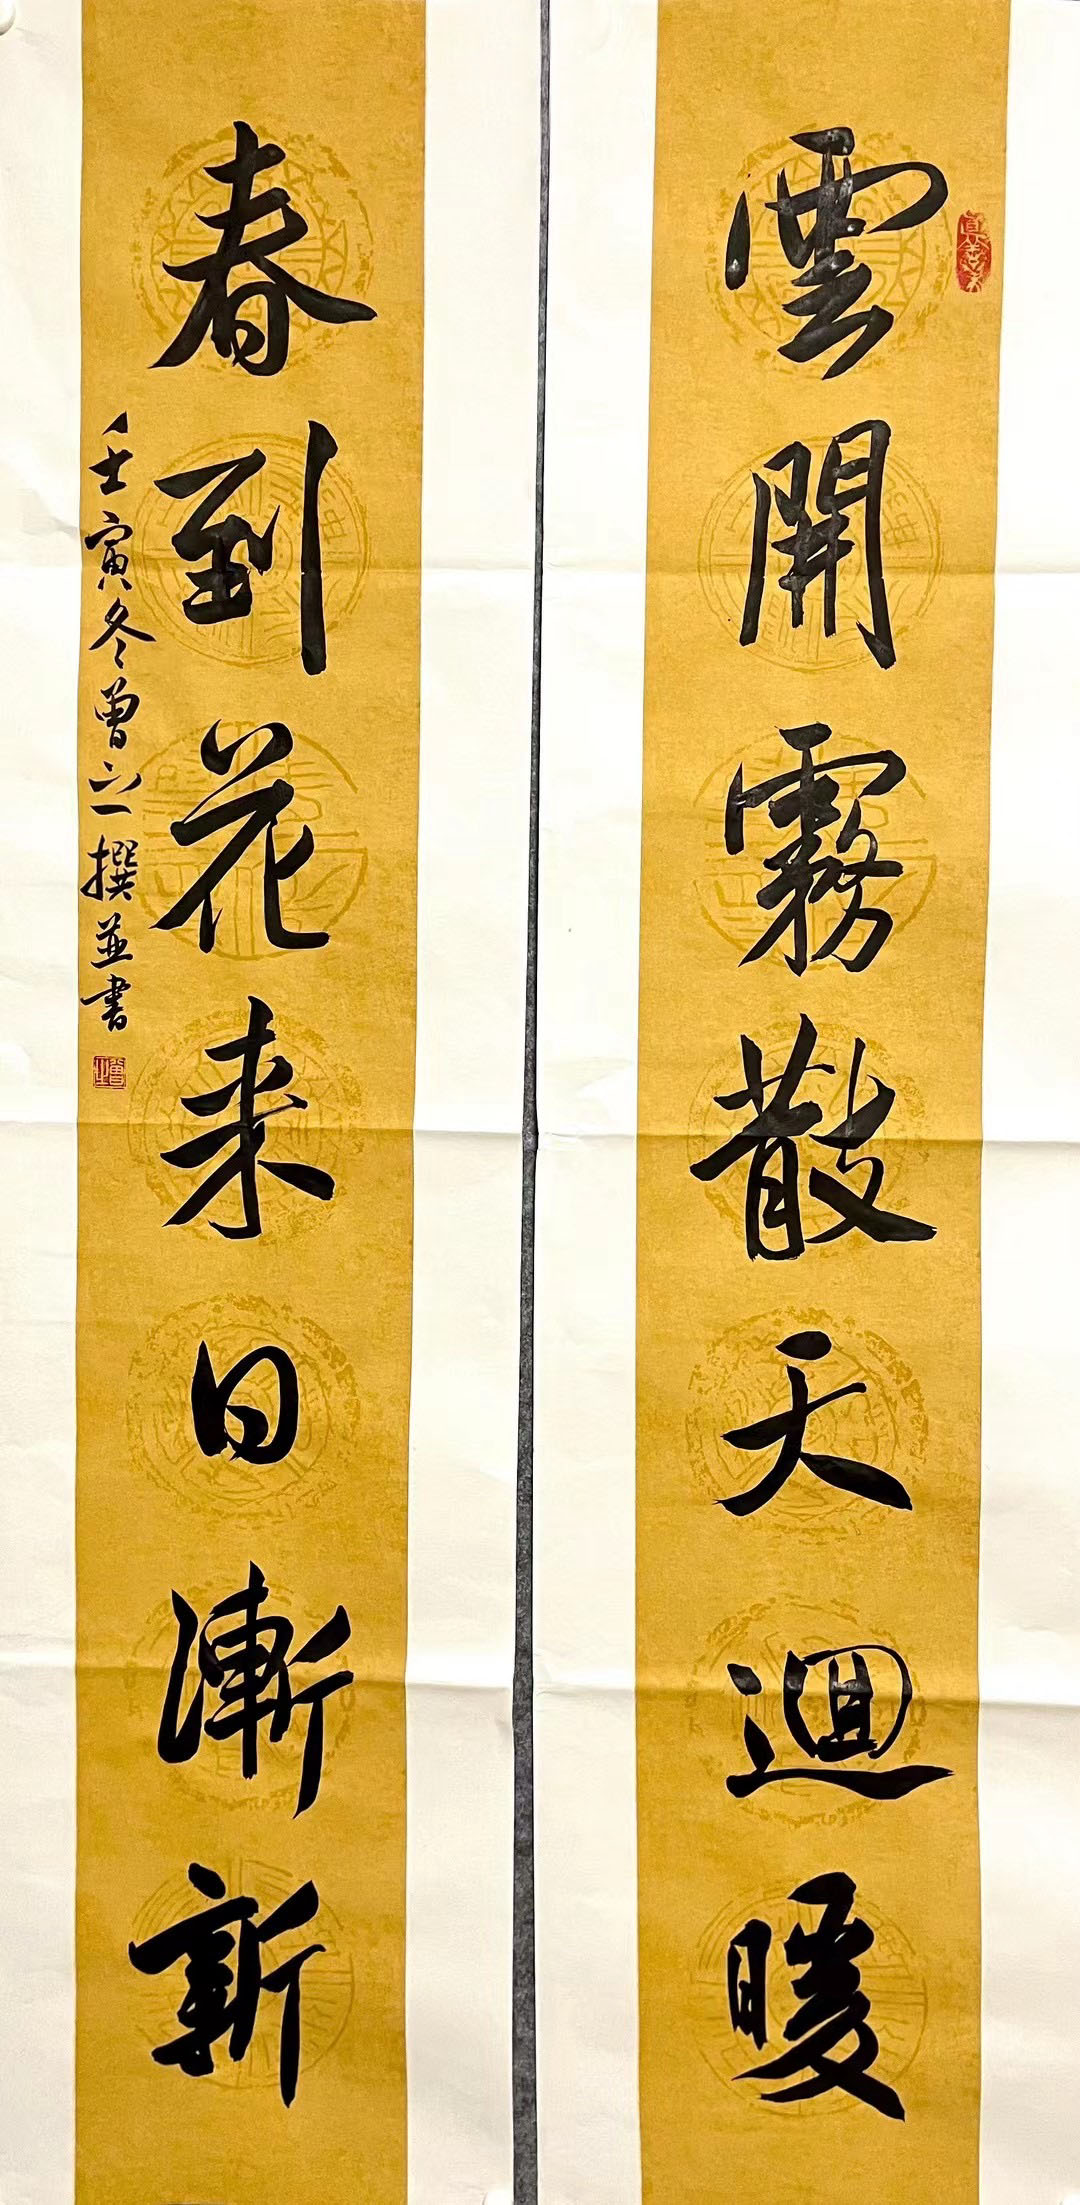 雲開霧散天迴暖
春到花來日漸新
壬寅冬曾六一撰並書